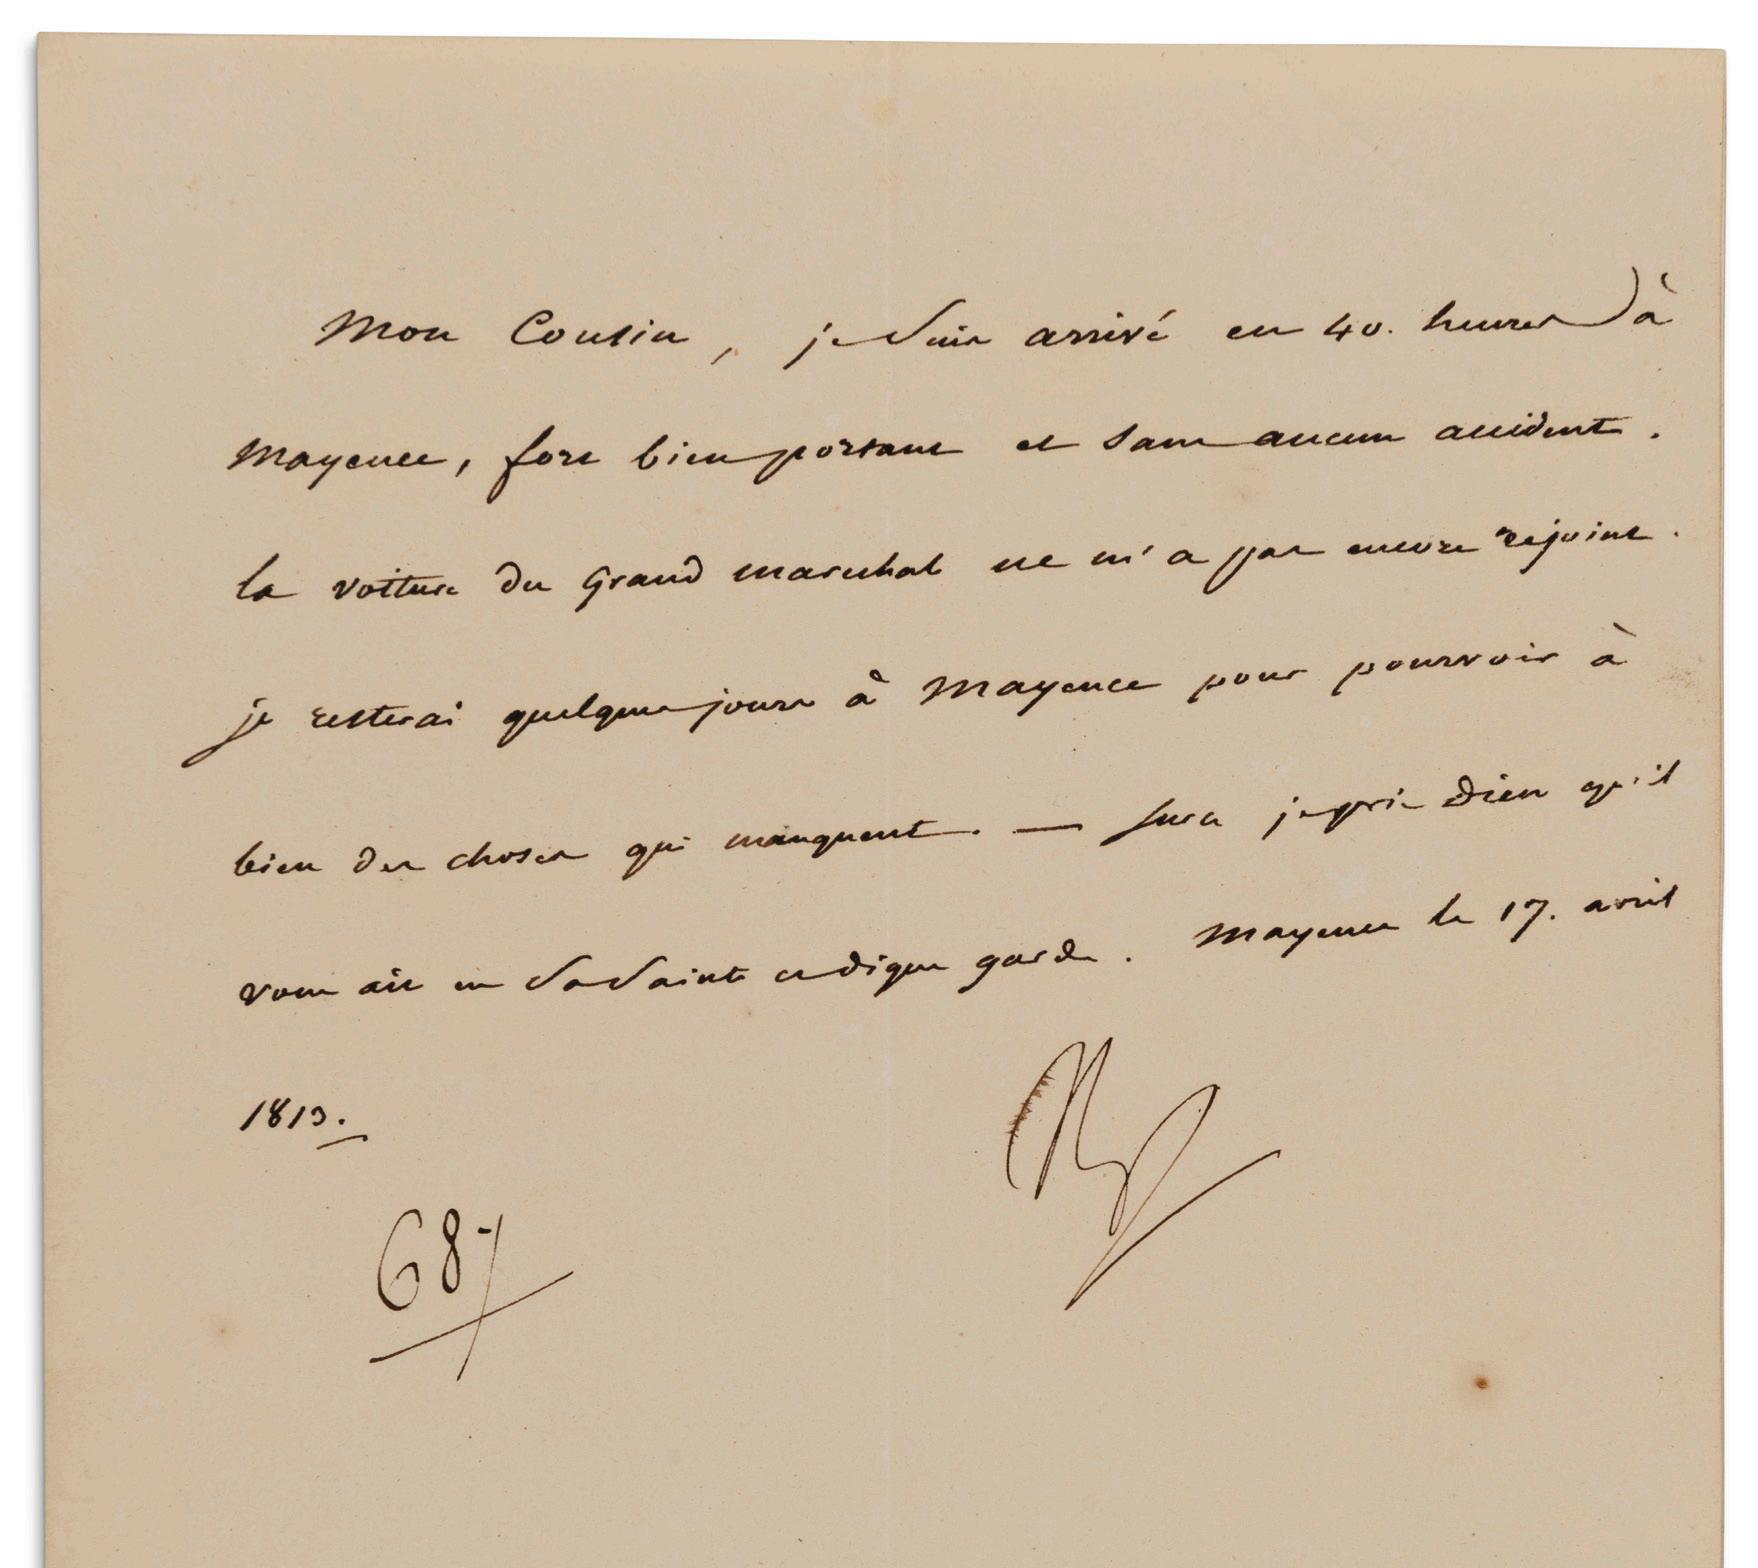 Mon Cousin, je suis arrivé en 40. heures à
Mayence, fort bien portant et sans aucun accident.
la voiture du Grand marechal ne m'a pas encore rejoint.
je resterai quelques jours à Mayence pour pourvoir à
bien des choses qui manquent. — sur ce je prie Dieu qu'il
vous ait en sa sainte et digne garde. Mayence le 17. avril
1813.
Np
687